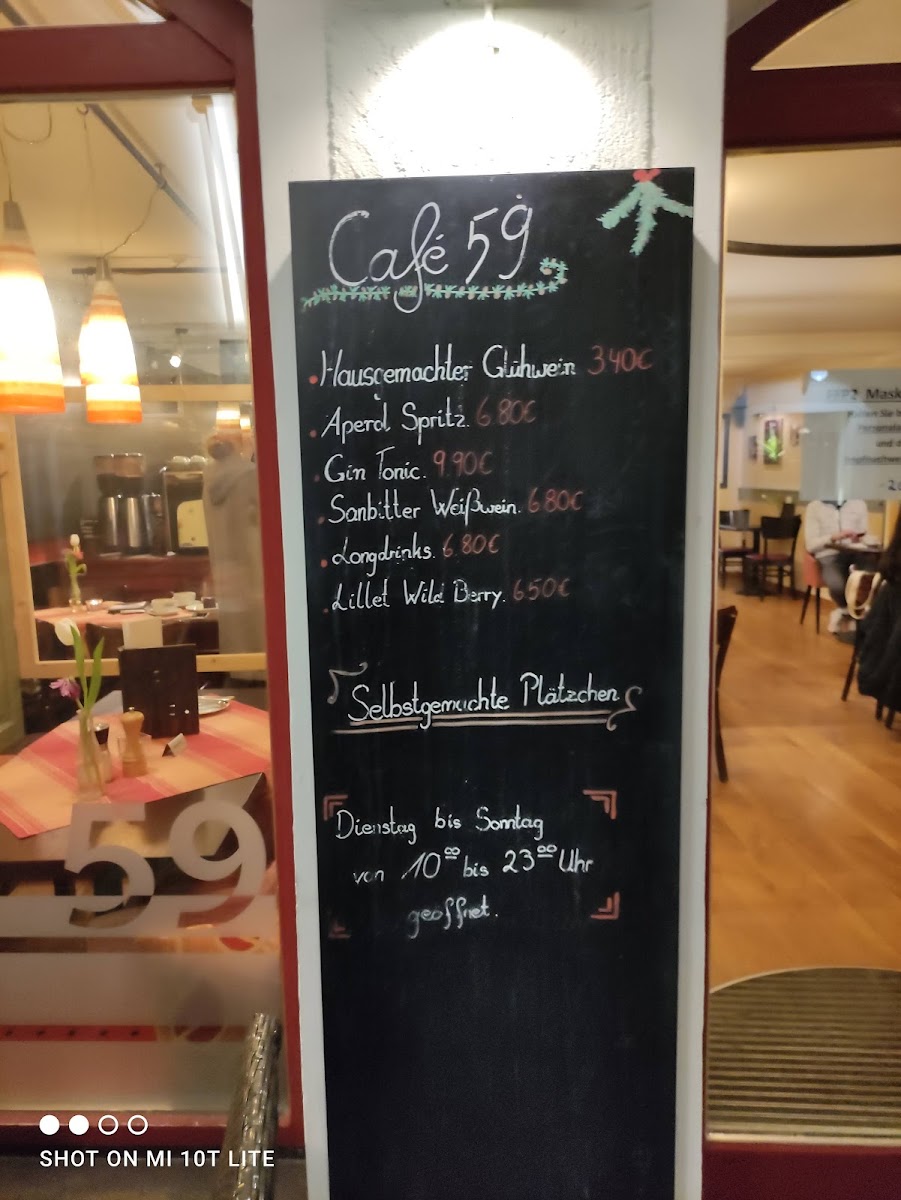 Café 59
Hausgemachter Glühwein 3.40€
Aperol Spritz. 6.80€
Gin Tonic. 9.90€
Sanbitter Weißwein. 6.80€
Longdrinks. 6.80€
Lillet Wild Berry. 6.50€
Selbstgemachte Plätzchen
Dienstag bis Sonntag
von 10⁰⁰ bis 23⁰⁰ Uhr
geöffnet.
59
FFP2 Mask
SHOT ON MI 10T LITE